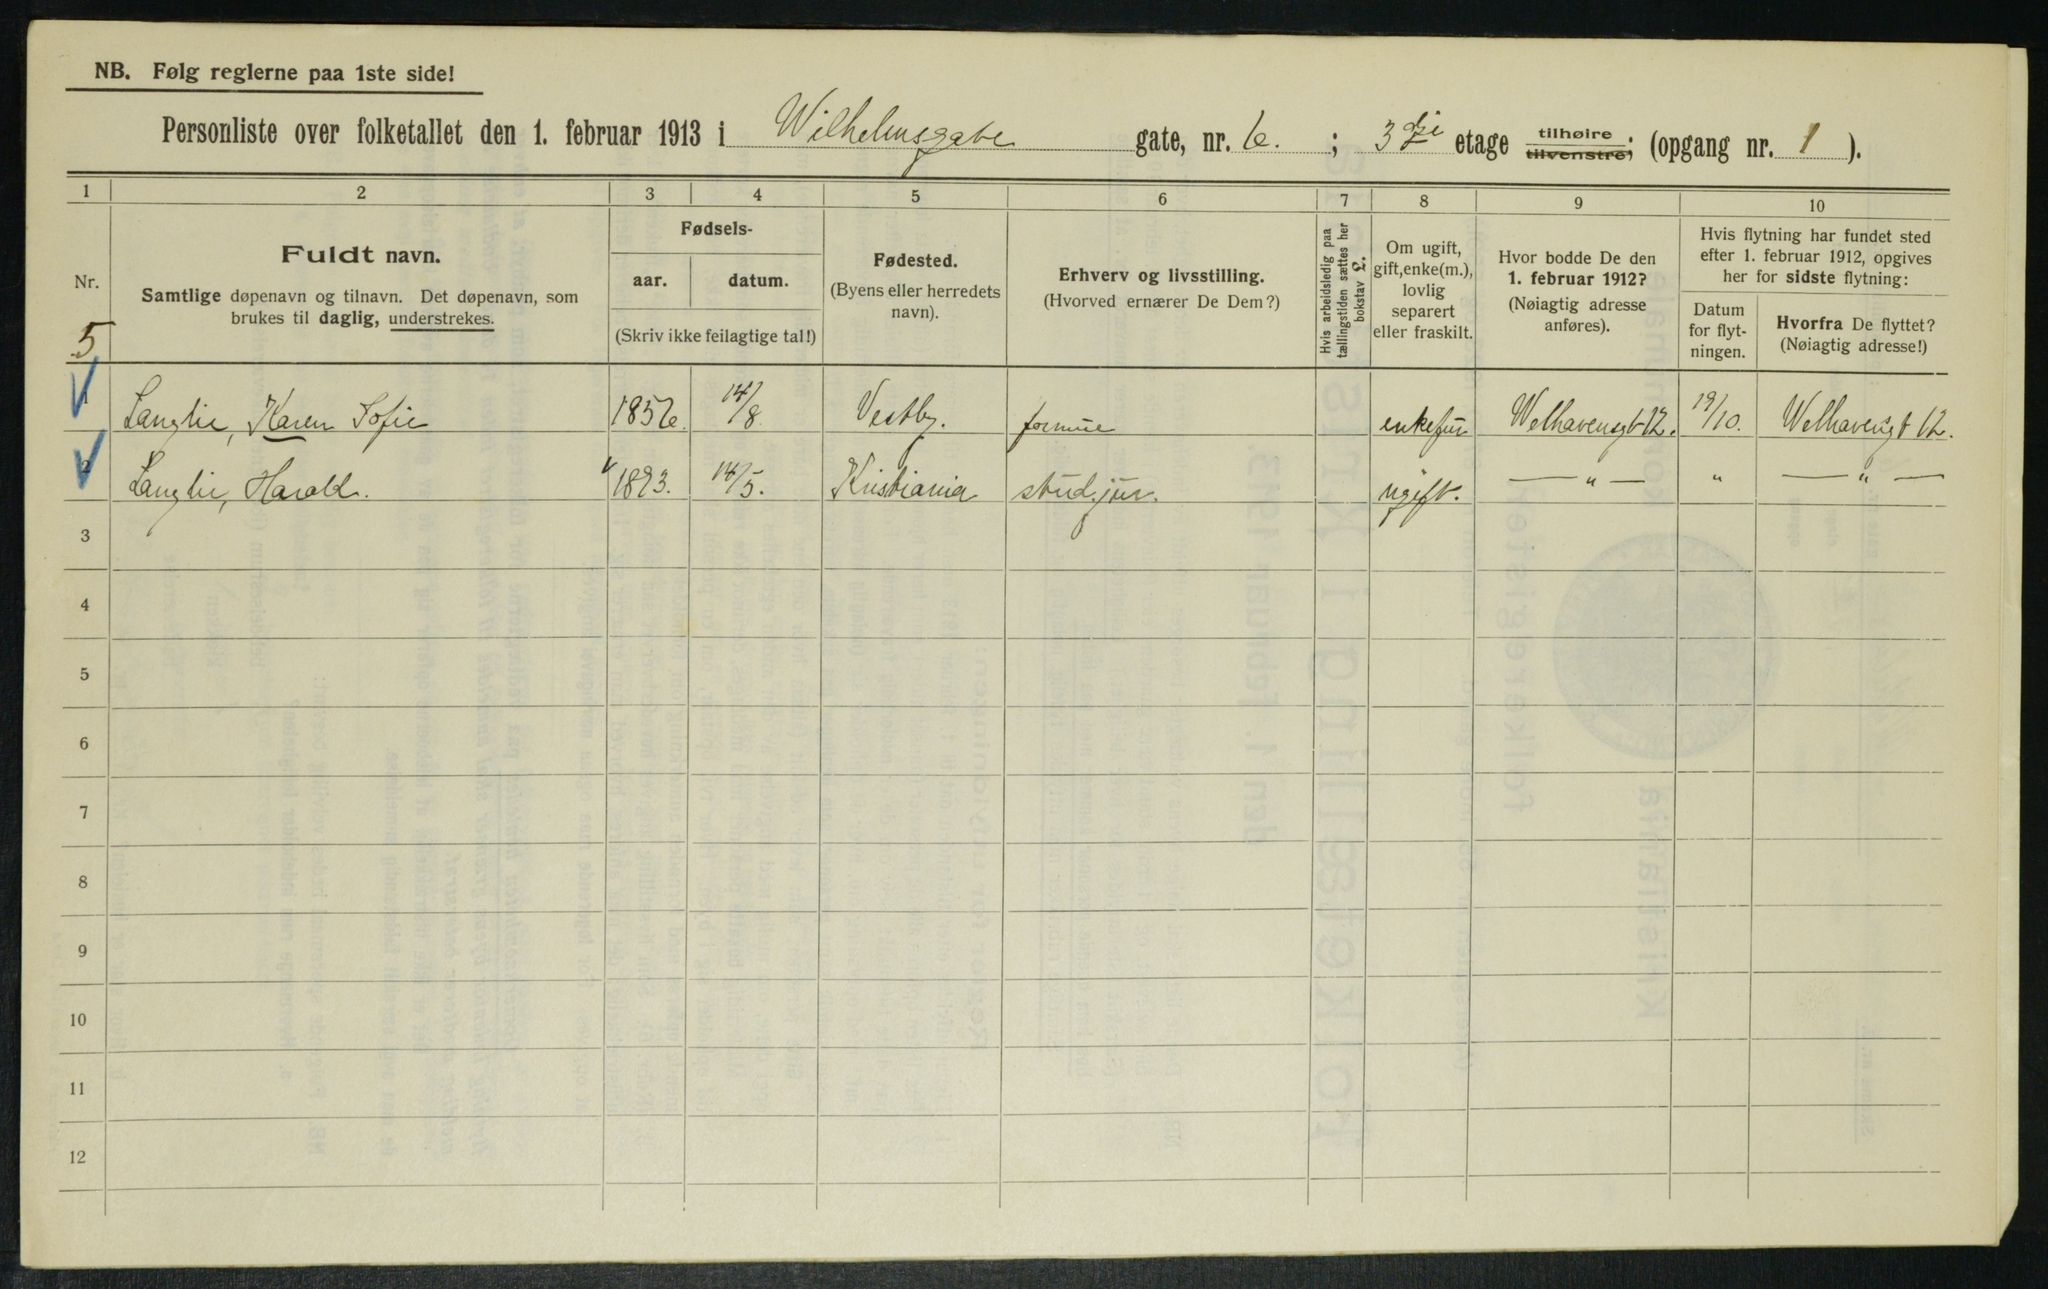 NB. Følg reglerne paa 1ste side!
Personliste over folketallet den 1. februar 1913 i Wilhelmsgate gate, nr. 6. ; 3dje etage tilhøire tilvenstre; (opgang nr. 1 ).
1 2 3 4 5 6 7 8 9 10
Nr.
5
Fuldt navn.
Samtlige døpenavn og tilnavn. Det døpenavn, som
brukes til daglig, understrekes.
Fødsels-
aar. datum.
(Skriv ikke feilagtige tal!)
Fødested.
(Byens eller herredets
navn).
Erhverv og livsstilling.
(Hvorved ernærer De Dem?)
Hvis arbeidsledig paa
tællingstiden sættes her
bokstav L.
Om ugift,
gift, enke(m.),
lovlig
separert
eller fraskilt.
Hvor bodde De den
1. februar 1912?
(Nøiagtig adresse
anføres).
Hvis flytning har fundet sted
efter 1. februar 1912, opgives
her for sidste flytning:
Datum
for flyt-
ningen.
Hvorfra De flyttet?
(Nøiagtig adresse!)
1 Langlie, Karen Sofie 1856. 14/8. Vestby. formue enkefru Welhavensgt 12. 19/10. Welhavensgt 12.
2 Langlie, Harald. 1893. 14/5. Kristiania stud. jur. ugift. — " — " — " —
3
4
5
6
7
8
9
10
11
12